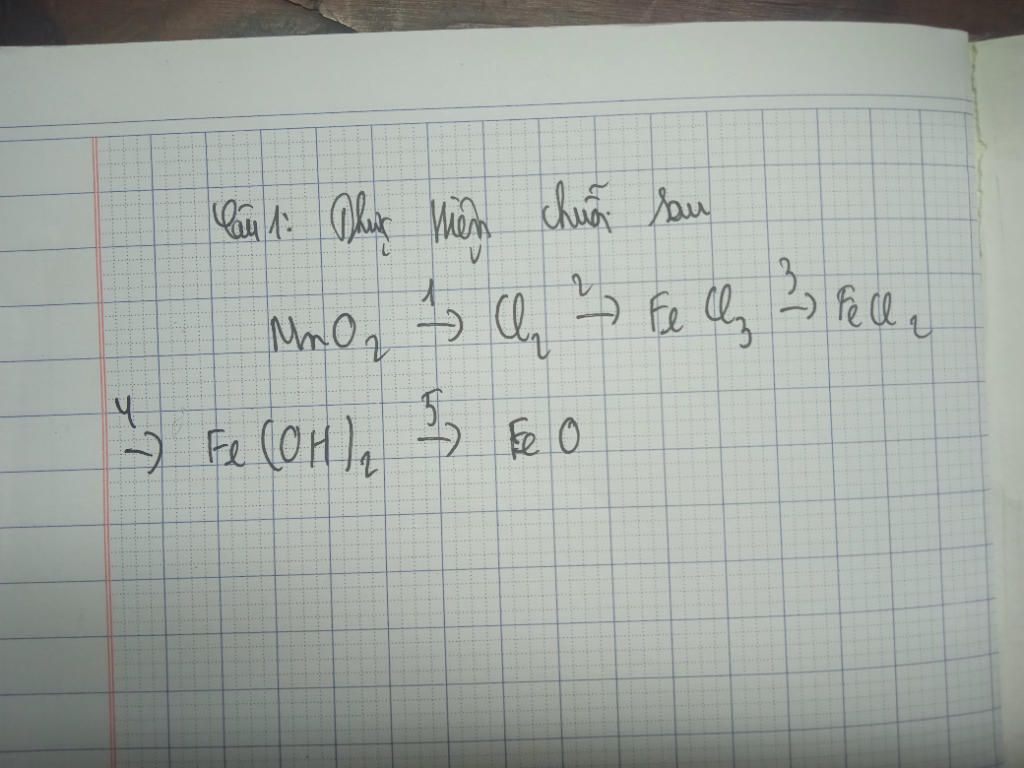 Câu 1: Thực hiện chuỗi sau
MnO₂ →¹ Cl₂ →² FeCl₃ →³ FeCl₂
→⁴ Fe(OH)₂ →⁵ FeO